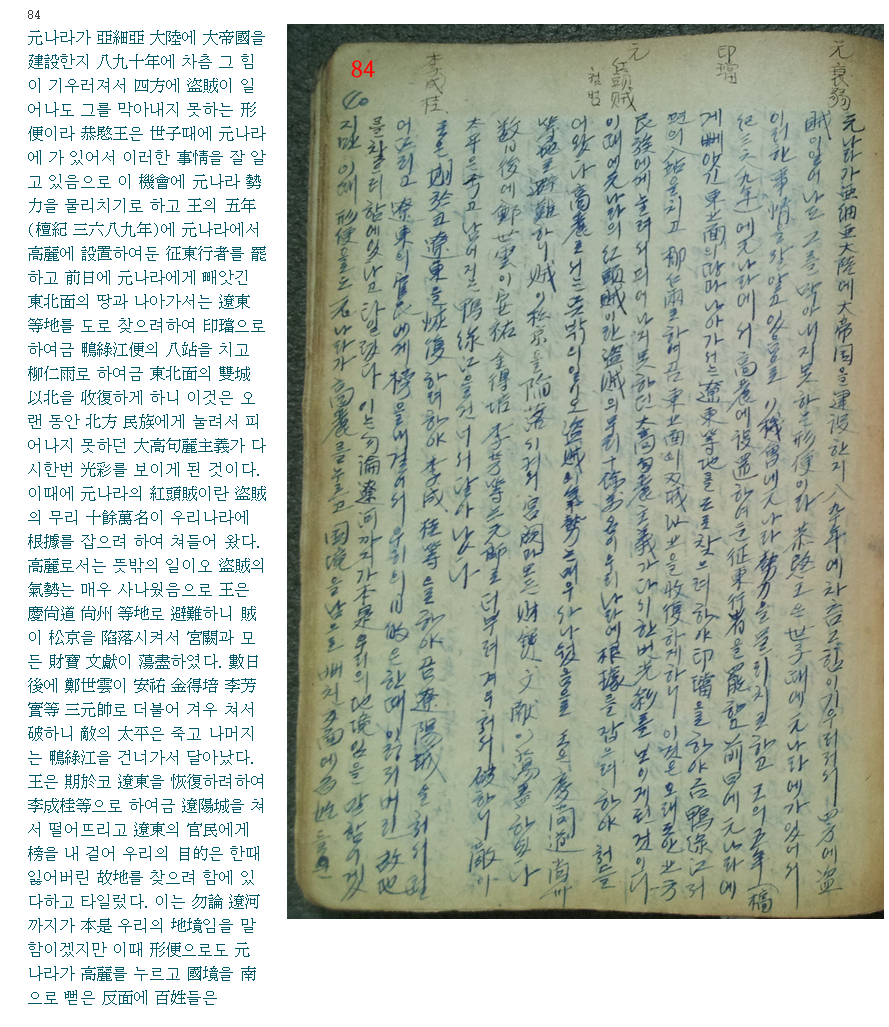 84
元나라가 亞細亞 大陸에 大帝國을
建設한지 八九十年에 차츰 그 힘
이 기우러져서 四方에 盜賊이 일
어나도 그를 막아내지 못하는 形
便이라 恭愍王은 世子때에 元나라
에 가 있어서 이러한 事情을 잘 알
고 있음으로 이 機會에 元나라 勢
力을 물리치기로 하고 王의 五年
(檀紀 三六八九年)에 元나라에서
高麗에 設置하여둔 征東行者를 罷
하고 前日에 元나라에게 빼앗긴
東北面의 땅과 나아가서는 遼東
等地를 도로 찾으려하여 印璫으로
하여금 鴨綠江便의 八站을 치고
柳仁雨로 하여금 東北面의 雙城
以北을 收復하게 하니 이것은 오
랜 동안 北方 民族에게 눌려서 피
어나지 못하던 大高句麗主義가 다
시한번 光彩를 보이게 된 것이다.
이때에 元나라의 紅頭賊이란 盜賊
의 무리 十餘萬名이 우리나라에
根據를 잡으려 하여 쳐들어 왔다.
高麗로서는 뜻밖의 일이오 盜賊의
氣勢는 매우 사나웠음으로 王은
慶尙道 尙州 等地로 避難하니 賊
이 松京을 陷落시켜서 宮闕과 모
든 財寶 文獻이 蕩盡하였다. 數日
後에 鄭世雲이 安祐 金得培 李芳
實等 三元帥로 더불어 겨우 쳐서
破하니 敵의 太平은 죽고 나머지
는 鴨綠江을 건너가서 달아났다.
王은 期於코 遼東을 恢復하려하여
李成桂等으로 하여금 遼陽城을 쳐
서 떨어뜨리고 遼東의 官民에게
榜을 내 걸어 우리의 目的은 한때
잃어버린 故地를 찾으려 함에 있
다하고 타일렀다. 이는 勿論 遼河
까지가 本是 우리의 地境임을 말
함이겠지만 이때 形便으로도 元
나라가 高麗를 누르고 國境을 南
으로 뻗은 反面에 百姓들은
84
元 衰弱
印璫
元 紅頭賊
침범
李成桂
元나라가 亞細亞大陸에 大帝国을 建設한지 八九十年에 차츰 그 힘이 기우러져서 四方에 盜
賊이 일어나도 그를 막아내지 못하는 形便이라 恭愍王은 世子때에 元나라에 가 있어서
이러한 事情을 잘 알고 있음으로 이 機會에 元나라 勢力을 물리치기로 하고 王의 五年(檀
紀三六八九年)에 元나라에서 高麗에 設置하여둔 征東行省을 罷함 前日에 元나라에
게 빼앗긴 東北面의 땅과 나아가서는 遼東等地를 도로 찾으려 하야 印璫을 하야곰 鴨綠江서
편의 八站을 치고 柳仁雨로 하여곰 東北面의 双城以北을 收復하게 하니 이것은 오래동안 北方
民族에게 눌려서 피어나지 못하던 大高句麗主義가 다시 한번 光彩를 보이게 된 것이다
이때에 元나라의 紅頭賊이란 盜賊의 무리 十餘萬名이 우리나라에 根據를 잡으려 하야 쳐들
어왔다 高麗로서는 뜻밖의 일이오 盜賊의 氣勢는 매우 사나웠음으로 王은 慶尙道 尙州
等地로 避難하니 賊이 松京을 陷落시켜서 宮闕과 모든 財寶 文獻이 蕩盡하였다
数日後에 鄭世雲이 安祐 金得培 李芳等 三元帥로 더부러 겨우 쳐서 破하니 敵의
太平은 죽고 남어지는 鴨綠江을 건너서 달아났다
王은 期於코 遼東을 恢復하려 하야 李成桂等을 하야곰 遼陽城을 쳐서 떨
어뜨리고 遼東의 官民에게 榜을 내걸어서 우리의 目的은 한때 잃어버린 故地
를 찾으려 함에 있다고 타일렀다 이는 勿論 遼河까지가 本是 우리의 地境임을 말함이겠
지만 이때 形便으로도 元나라가 高麗를 누르고 国境을 南으로 뻗친 反面에 百姓들은